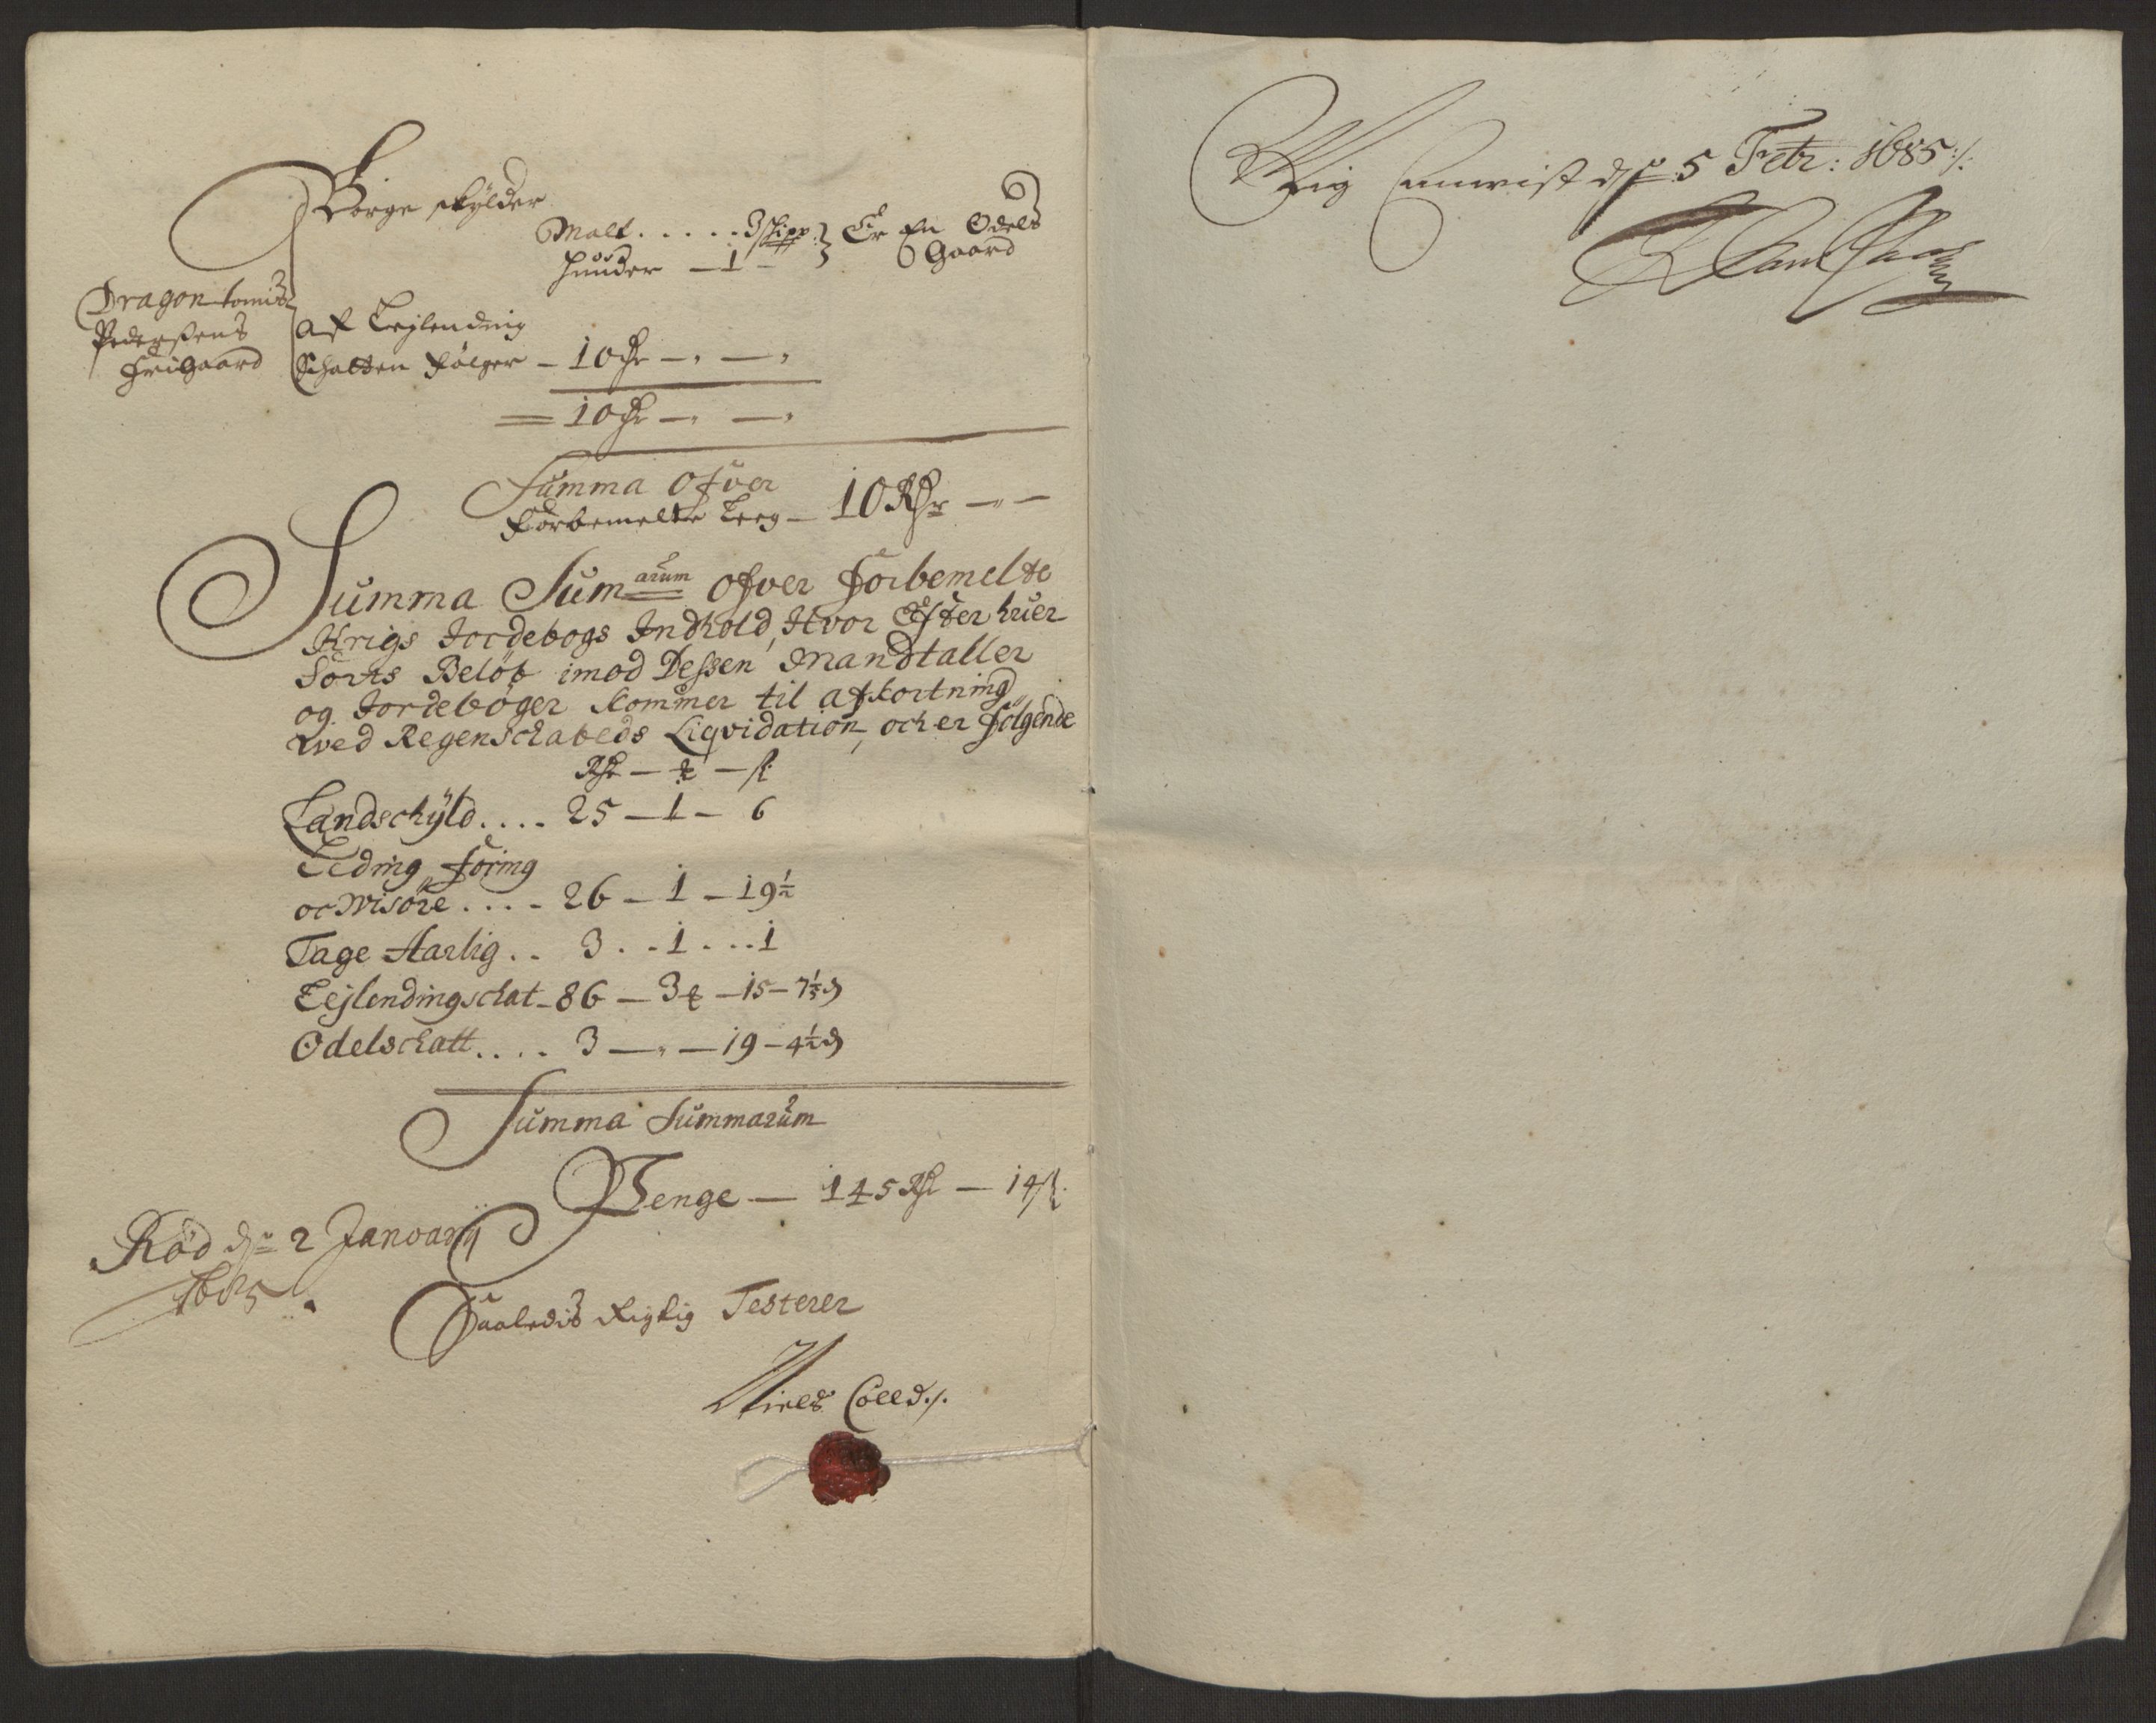 Borge skylder
Malt . . . . . 3 skipp } Er En Odels
Huuder — 1 — Gaard
Dragon tomis
Pedersens
Frigaard
Af Leylending
Schatten følger — 10 Rdr — „ — „
= 10 Rdr — „ — „
Summa Ofver
forbemelte Leeg — 10 Rdr — „ —
Summa Sum arum ofver forbemelte
Krigs Jordebogs Indhold, Hvor Efter huer
Sorts Beløb imod Dessen Mandtaller
og Jordebøger kommer til afkortning
wed Regenschabeds Liqvidation, och er følgende
Rdr — ₰ — ß
Landschyld . . . . 25 — 1 — 6
Leding foring
oc Wisøre . . . . 26 — 1 — 19½
Tage Aarlig . . 3 . . 1 . . . 1
Lejlendingschat — 86 — 3 ₰ — 15 — 7⅕ ₰
Odelschatt . . . . 3 — „ — 19 — 4½ ₰
Summa Summarum
Penge — 145 Rdr — 14 ß
Rød dn 2 Januarij
1685
Saaledis Rigtig Testerer
Niels Coeld ./.
Mig Annvist dn 5 Febr: 1685 :/: